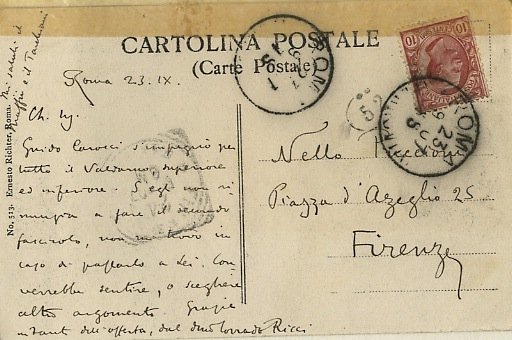 CARTOLINA POSTALE
(Carte Postale)
Roma 23.IX.
Ch. Sig.
Guido Carocci s'impegnò per
tutto il Valdarno superiore
ed inferiore. S'egli non ri
nunzia a fare il secondo
fascicolo, non mi trovo in
caso di passarlo a Lei. Con
verrebbe sentire, o scegliere
altro argomento. Grazie
intanto dell'offerta, dal dmo Corrado Ricci
Mi saluti il
e il Tarchiani
No. 513. Ernesto Richter, Roma.
Nello
Piazza d'Azeglio 25
Firenze
ROMA
ROMA
23
10
10
52